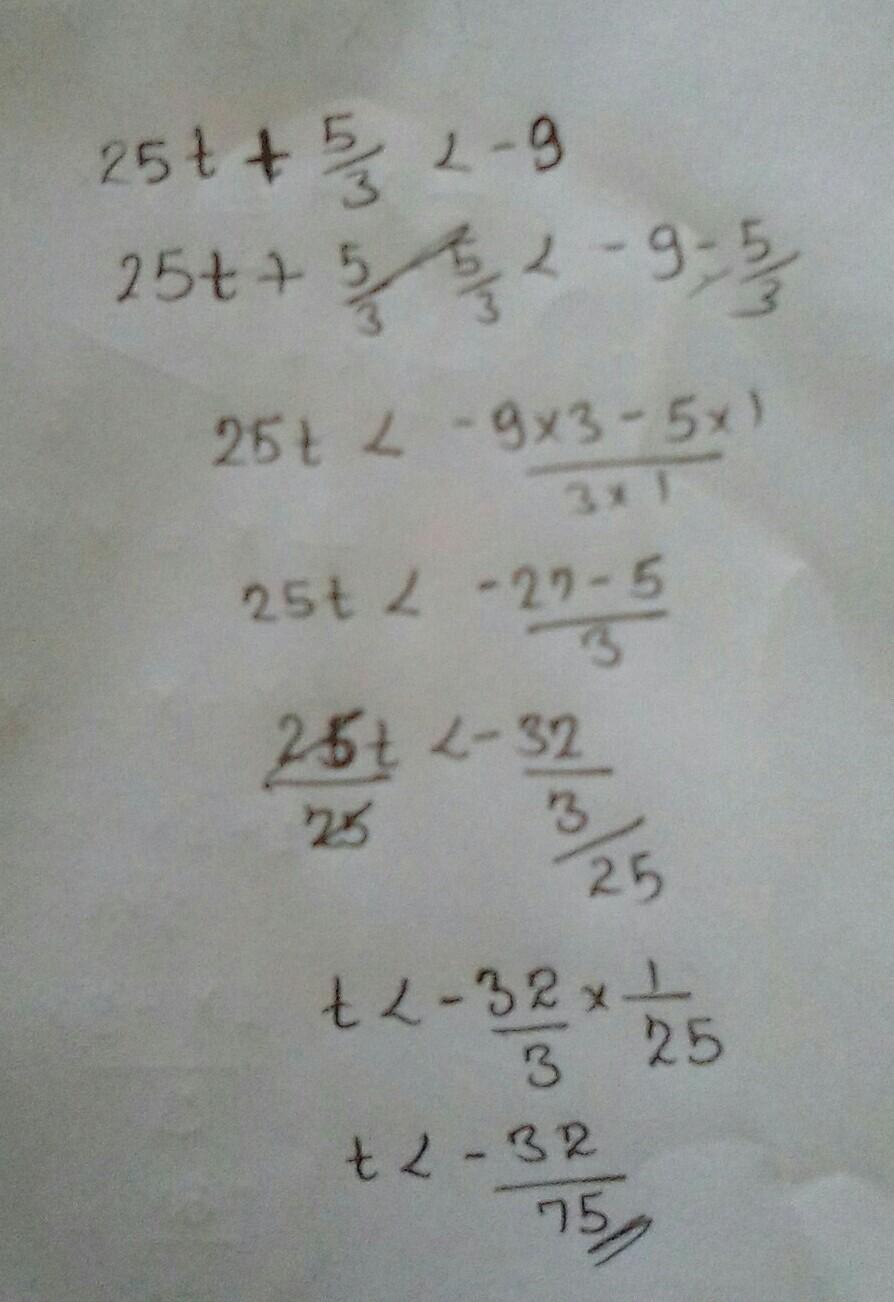 25t + 5/3 < -9
25t + 5/3 - 5/3 < -9 - 5/3
25t < -9x3 - 5x1 / 3x1
25t < -27 - 5 / 3
25t / 25 < -32 / 3 / 25
t < -32/3 x 1/25
t < -32/75